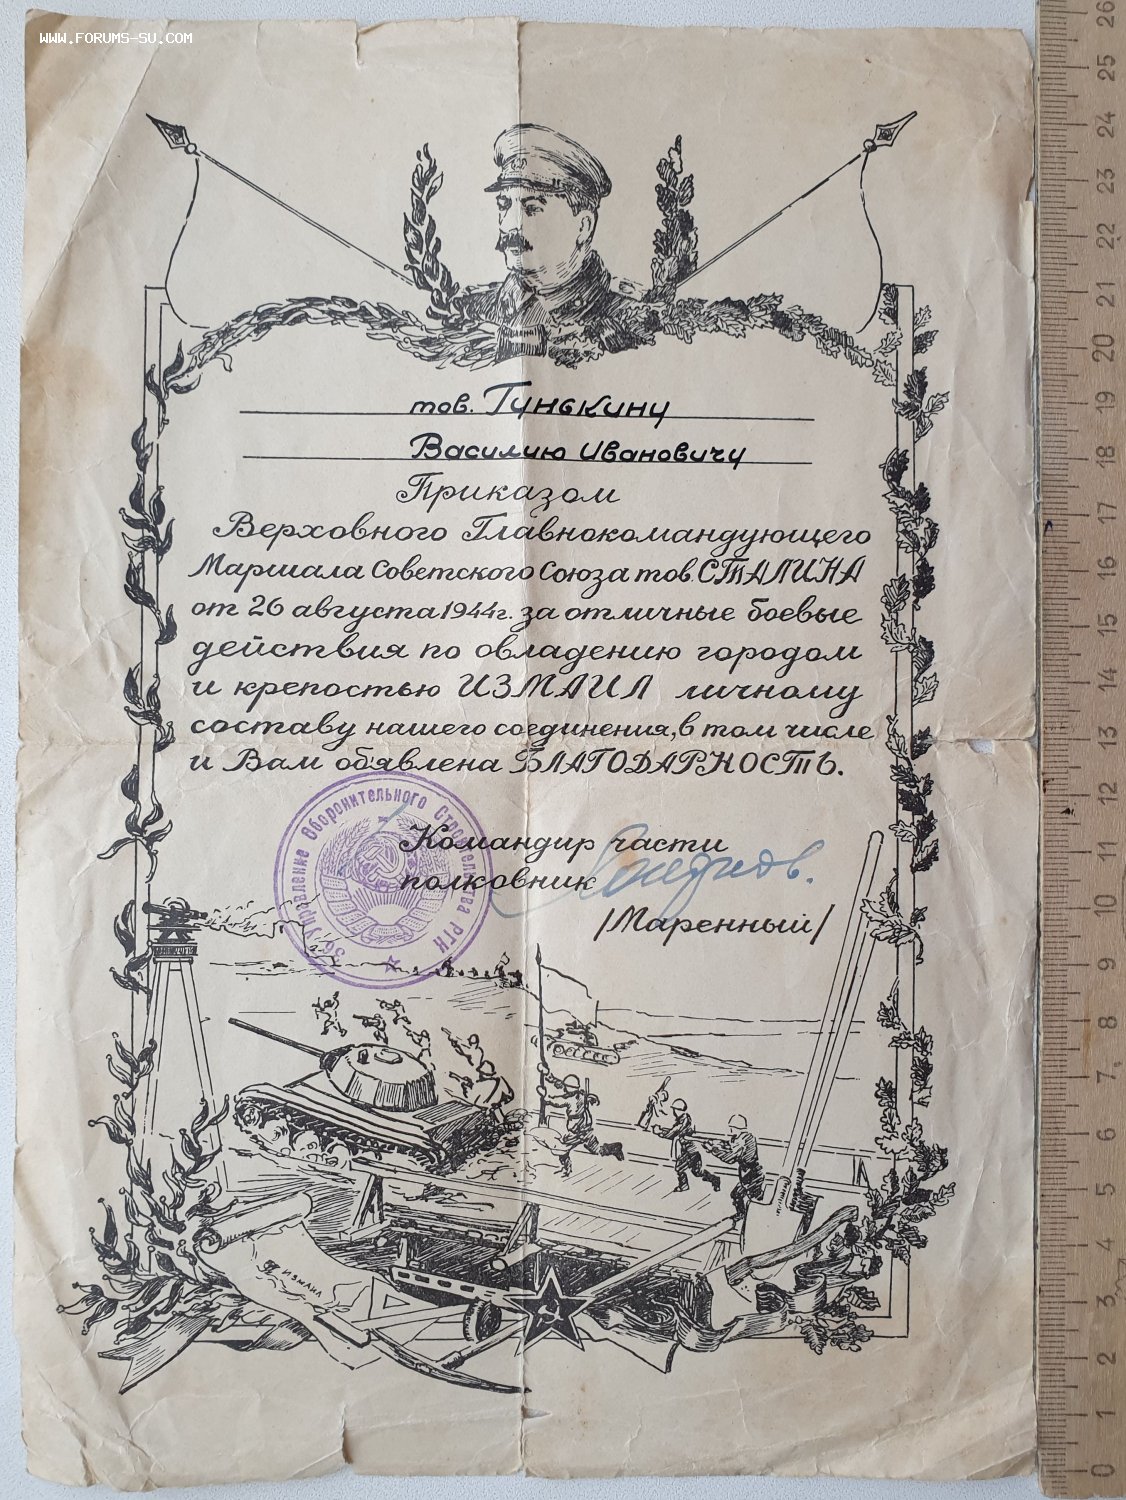 WWW.FORUMS-SU.COM
тов. Гунькину
Василию Ивановичу
Приказом
Верховного Главнокомандующего
Маршала Советского Союза тов. СТАЛИНА
от 26 августа 1944 г. за отличные боевые
действия по овладению городом
и крепостью ИЗМАИЛ личному
составу нашего соединения, в том числе
и Вам объявлена БЛАГОДАРНОСТЬ.
Командир части
полковник
/Маренный/
36 Управление Оборонительного Строительства РГК
ИЗМАИЛ
26
25
24
23
22
21
20
19
18
17
16
15
14
13
12
11
10
9
8
7
6
5
4
3
2
1
0